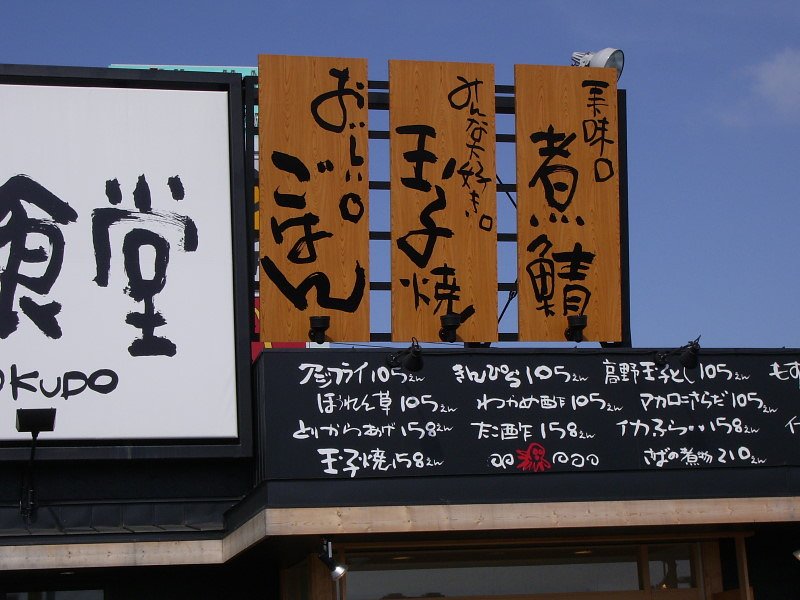 食堂
OKUDO
おいしい。
ごはん
みんな大好き。
玉子焼
美味。
煮鯖
アジフライ105えん きんぴら105えん 高野玉子とじ105えん もず
ほうれん草105えん わかめ酢105えん マカロニさらだ105えん
とりからあげ158えん たこ酢158えん イカふらい158えん イ
玉子焼158えん さばの煮物210えん